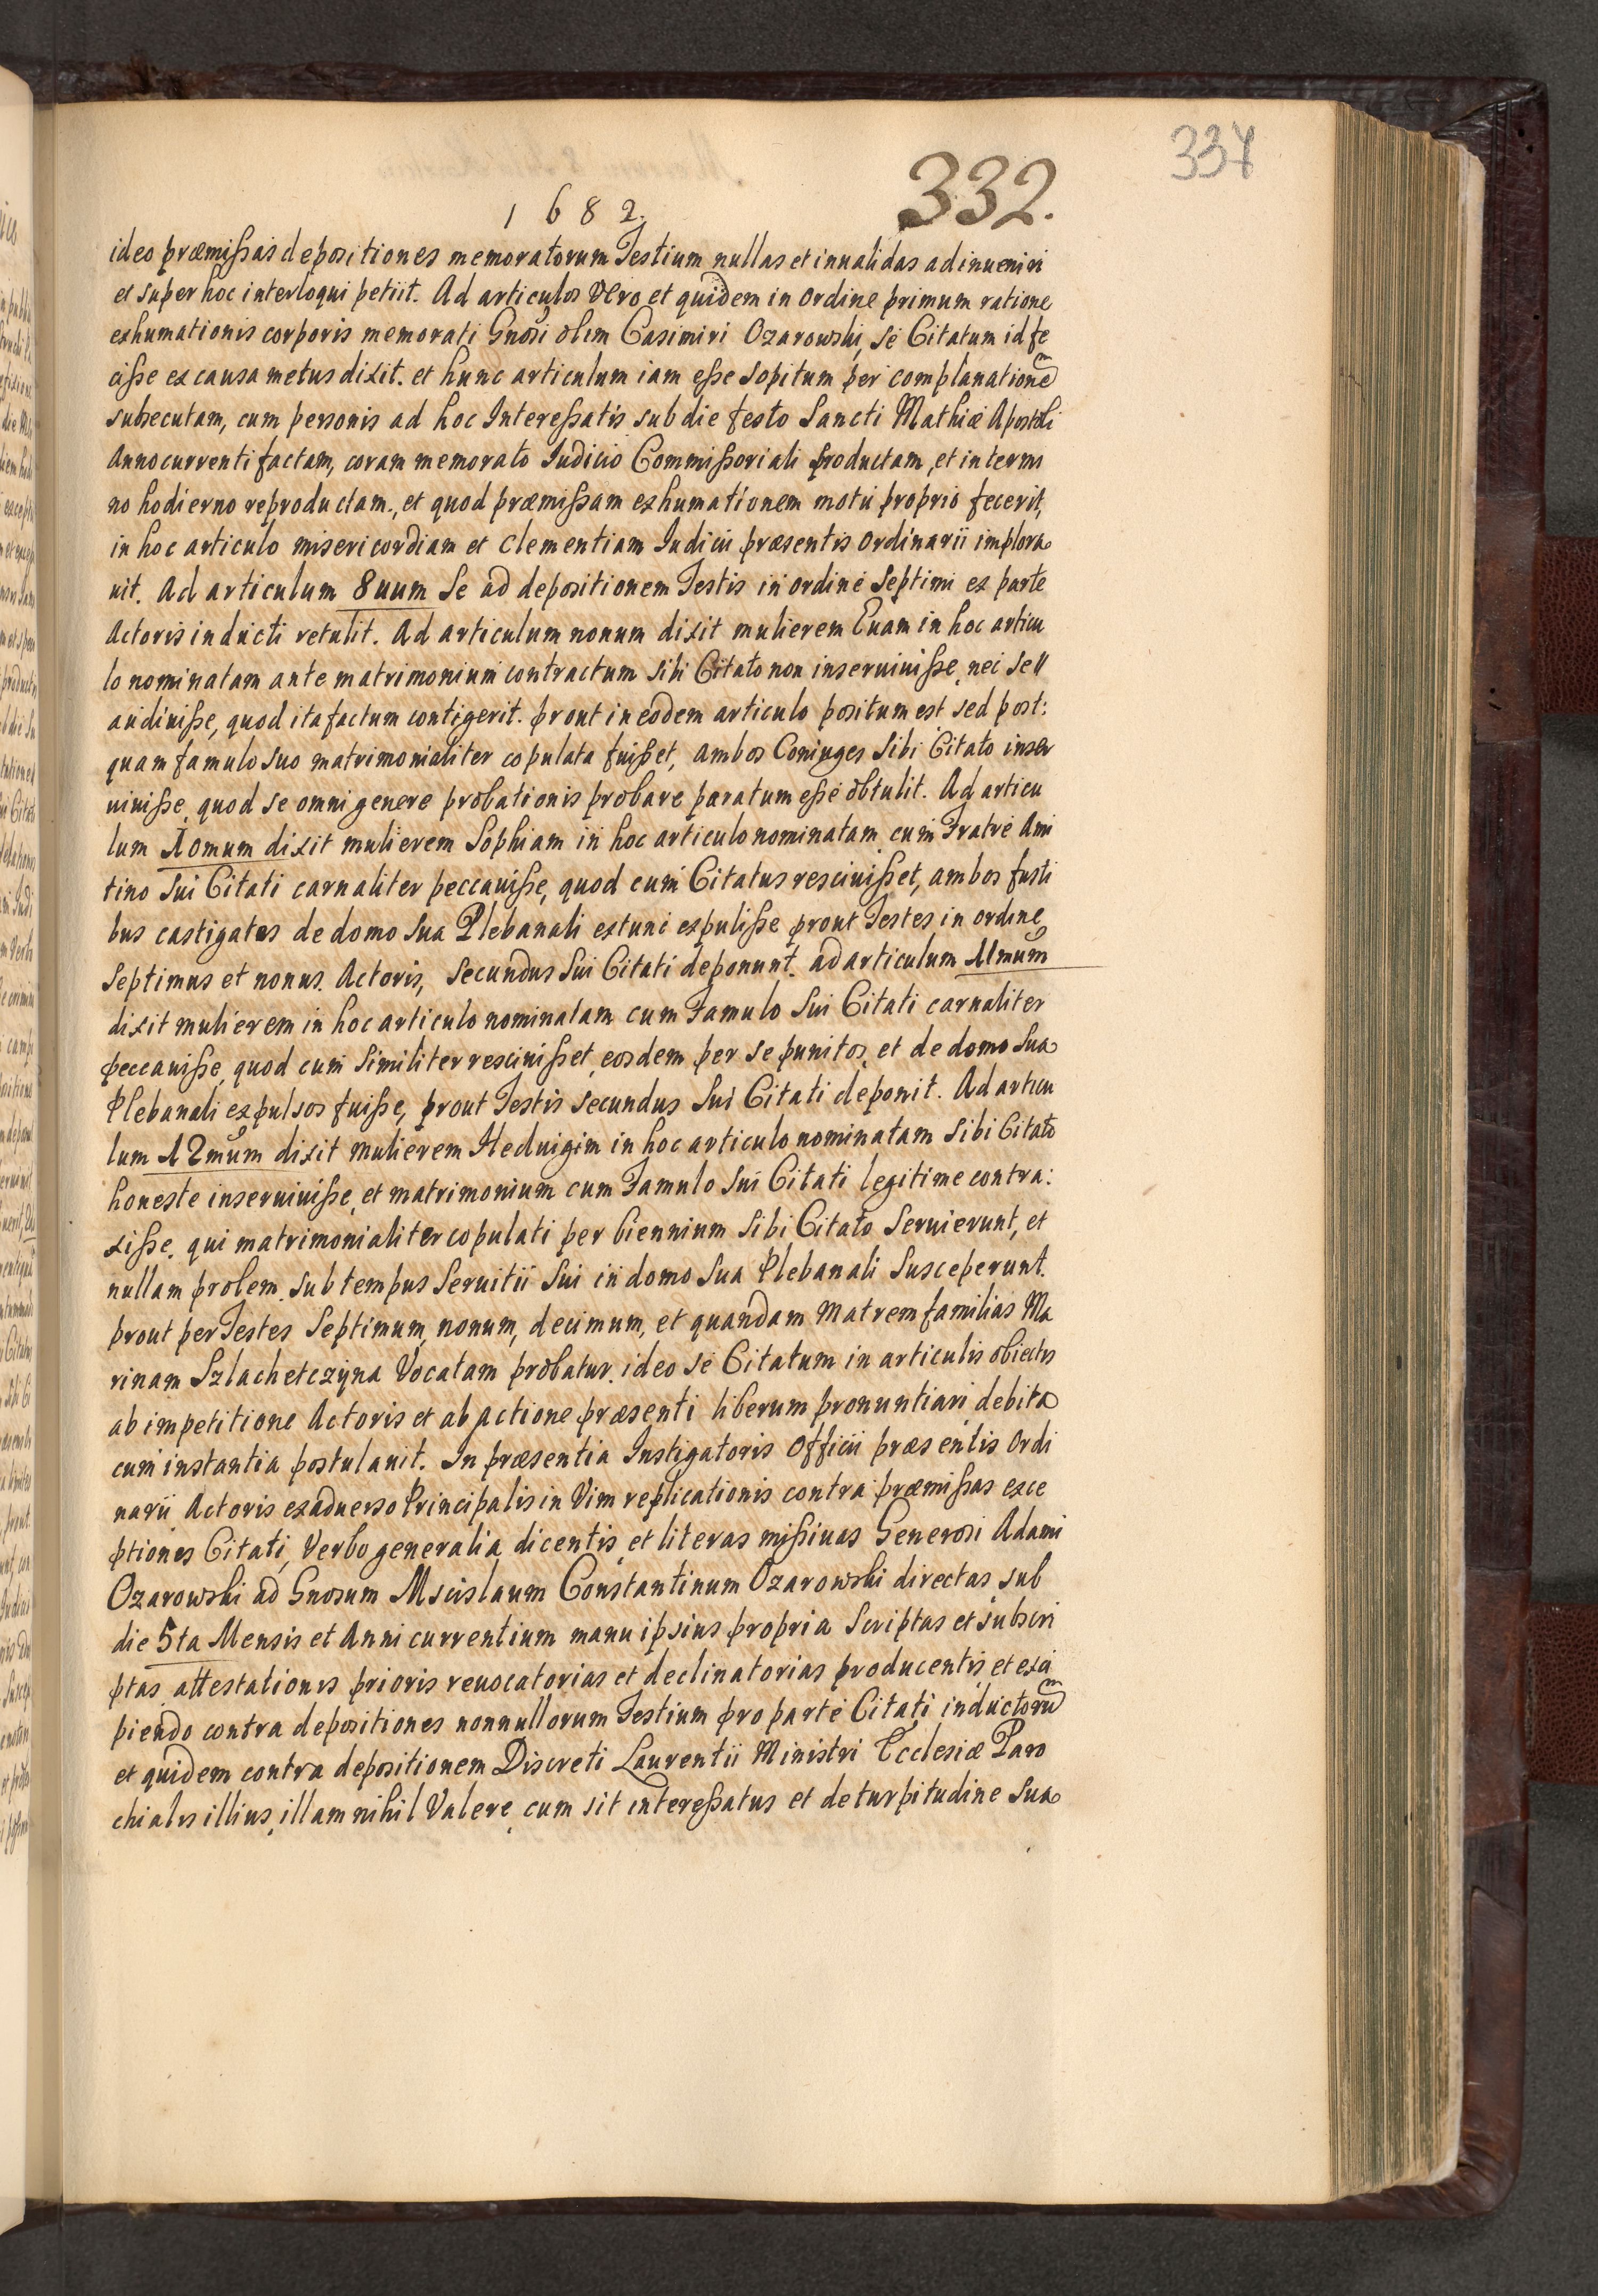 337
332.
1682.
ideo præmissas depositiones memoratorum Testium nullas et inualidas adinueniri
et super hoc interloqui petiit. Ad articulos Vero et quidem in ordine primum ratione
exhumationis corporis memorati Gnosi olim Casimiri Ozarowski, se Citatum id fe
cisse ex causa metus dixit. et hunc articulum iam esse sopitum per complanationem
subsecutam, cum personis ad hoc Interessatis sub die festo Sancti Mathiæ Apostoli
Anno currenti factam, coram memorato Iudicio Commissoriali productam, et in termi
no hodierno reproductam., et quod præmissam exhumationem motu proprio fecerit,
in hoc articulo misericordiam et Clementiam Iudicii præsentis Ordinarii implora
uit. Ad articulum 8uum Se ad depositionem Testis in ordine Septimi ex parte
Actoris inducti retulit. Ad articulum nonum dixit mulierem Euam in hoc articu
lo nominatam ante matrimonium contractum sibi Citato non inseruiuisse, nec se
audiuisse, quod ita factum contigerit. prout in eodem articulo positum est sed post:
quam famulo suo matrimonialiter copulata fuisset, ambos Coniuges Sibi Citato inser
uiuisse, quod se omni genere probationis probare paratum esse obtulit. Ad articu
lum 10mum dixit mulierem Sophiam in hoc articulo nominatam cum Fratre Ami
tino Sui Citati carnaliter peccauisse, quod cum Citatus resciuisset, ambos fusti
bus castigatos de domo Sua Plebanali extunc expulisse prout Testes in ordine
Septimus et nonus. Actoris, Secundus Sui Citati deponunt. ad articulum 11mum
dixit mulierem in hoc articulo nominatam cum Famulo Sui Citati carnaliter
peccauisse, quod cum Similiter resciuisset, eosdem per se punitos, et de domo Sua
Plebanali expulsos fuisse, prout Testis Secundus Sui Citati deponit. Ad articu
lum 12mum dixit mulierem Heduigim in hoc articulo nominatam Sibi Citato
honeste inseruiuisse, et matrimonium cum Famulo Sui Citati legitime contra:
xisse. qui matrimonialiter copulati per biennium Sibi Citato Seruierunt, et
nullam prolem. sub tempus Seruitii Sui in domo Sua Plebanali Susceperunt.
prout per Testes Septimum, nonum, decimum, et quandam Matrem familias Ma
rinam Szlachetczyna Vocatam probatur. ideo se Citatum in articulis obiectis
ab impetitione Actoris et ab actione præsenti liberum pronuntiari debita
cum instantia postulauit. In præsentia Instigatoris Officii præsentis Ordi
narii Actoris ex aduerso Principalis in Vim replicationis contra præmissas exce
ptiones Citati, Verbo generalia dicentis, et literas missiuas Generosi Adami
Ozarowski ad Gnosum Mscislaum Constantinum Ozarowski directas, sub
die 5ta Mensis et Anni currentium manu ipsius propria Scriptas et subscri
ptas attestationis prioris reuocatorias et declinatorias producentis, et exci
piendo contra depositiones nonnullorum Testium pro parte Citati, inductorum
et quidem contra depositionem Discreti Laurentii Ministri Ecclesiæ Paro
chialis illius, illam nihil Valere, cum sit interessatus et de turpitudine Sua